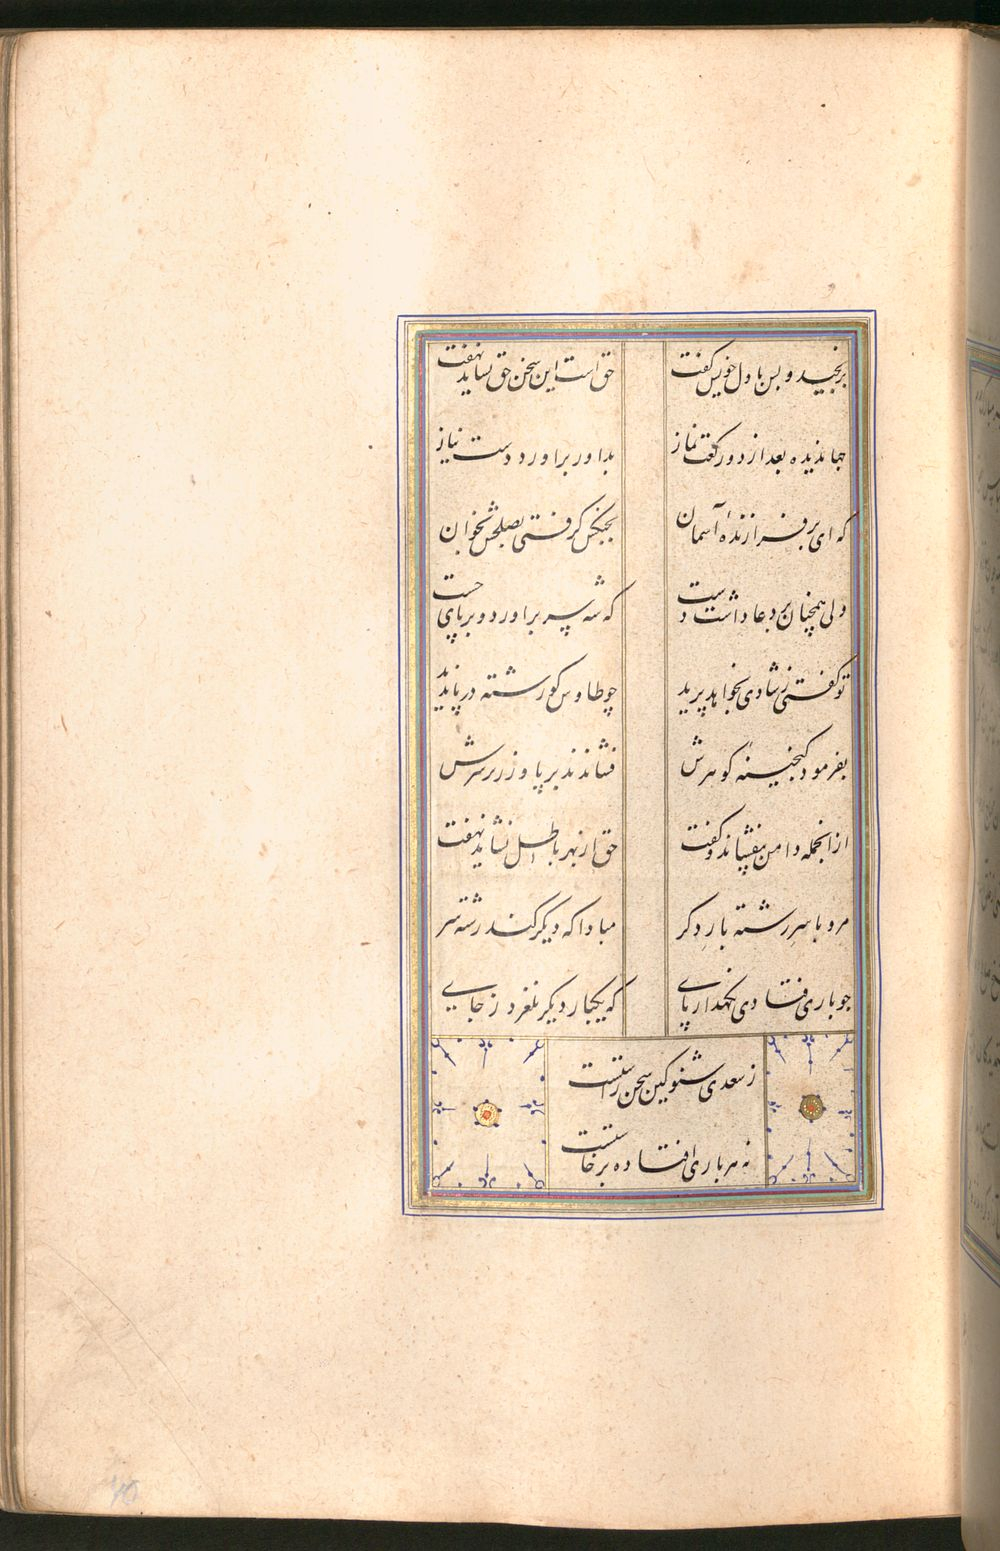 برنجید و پس با دل خویش گفت
حق است این سخن حق نشاید نهفت
جهاندیده بعد از دو رکعت نماز
بداور براورد دست نیاز
که ای برفرازندهٔ آسمان
بجنگش گرفتی بصلحش بخوان
ولی همچنان بر دعا داشت دست
که شه سر براورد و بر پای جست
تو گفتی ز شادی بخواهد پرید
چو طاوس کو رشته در پا ندید
بفرمود گنجینهٔ گوهرش
فشاندند بر پا و زر بر سرش
از انجمله دامن بیفشاند و گفت
حق از بهر باطل نشاید نهفت
مرو با سر رشته بار دگر
مبادا که دیگر کند رشته سر
چو باری فتادی نگهدار پای
که یکبار دیگر نلغزد ز جای
ز سعدی شنو کین سخن راستست
نه هر باری افتاده برخاستست